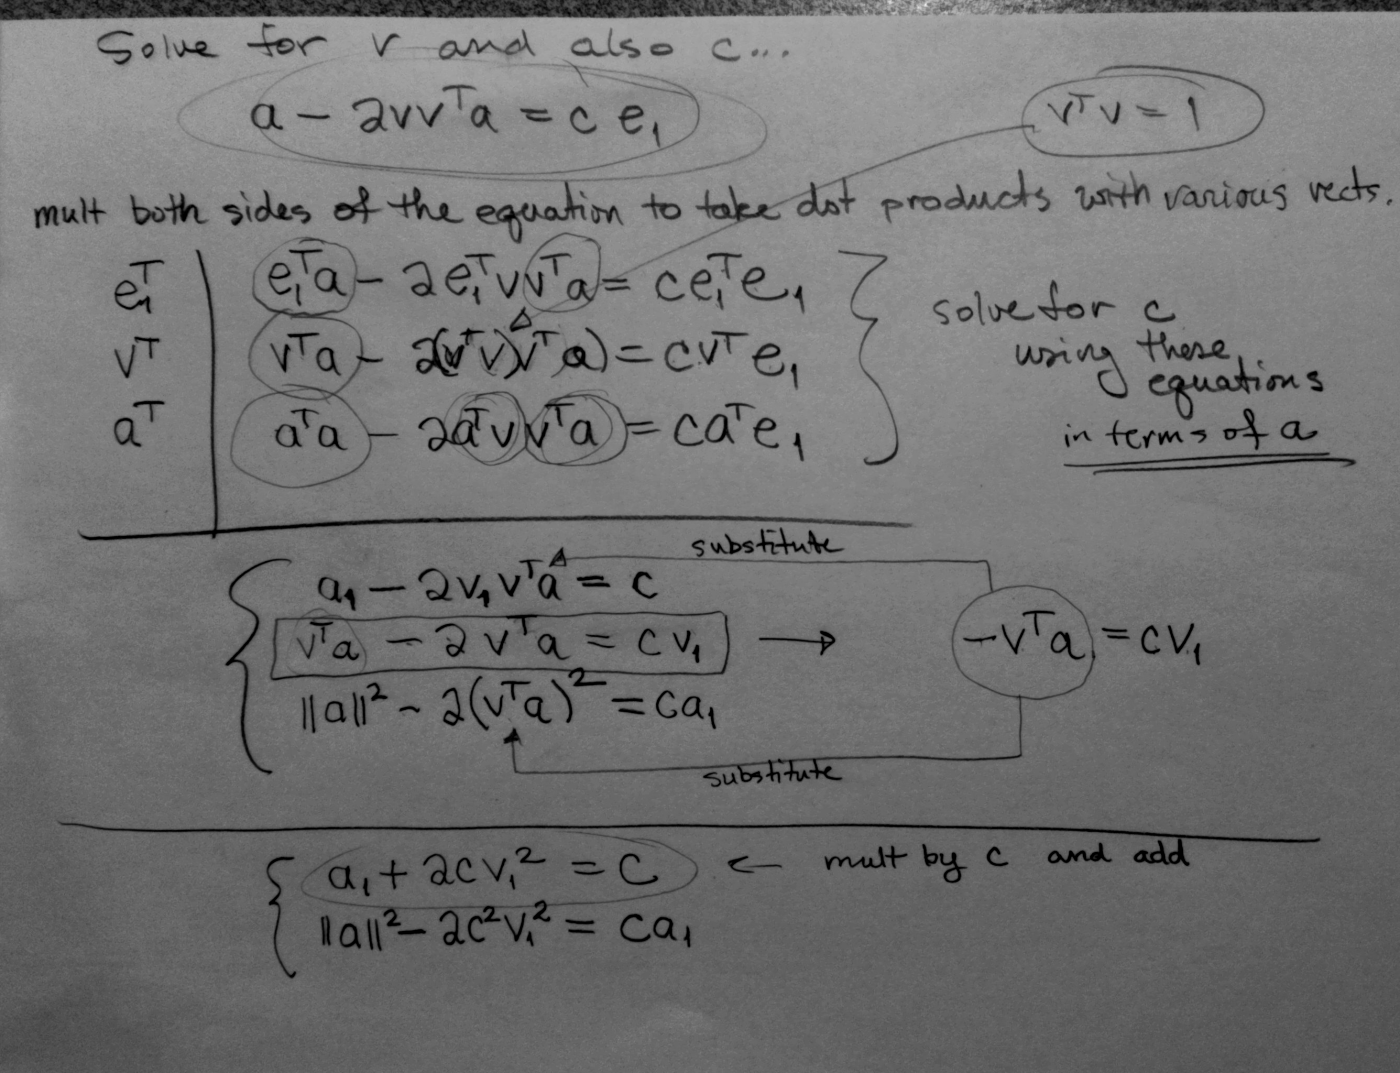 Solve for v and also c...
a − 2vvᵀa = c e₁
vᵀv = 1
mult both sides of the equation to take dot products with various vects.
e₁ᵀ | e₁ᵀa − 2e₁ᵀvvᵀa = ce₁ᵀe₁
vᵀ | vᵀa − 2(vᵀv)(vᵀa) = cvᵀe₁
aᵀ | aᵀa − 2aᵀvvᵀa = caᵀe₁
solve for c
using these
equations
in terms of a
substitute
a₁ − 2v₁vᵀa = c
vᵀa − 2vᵀa = cv₁ → −vᵀa = cv₁
‖a‖² − 2(vᵀa)² = ca₁
substitute
a₁ + 2cv₁² = c ← mult by c and add
‖a‖² − 2c²v₁² = ca₁